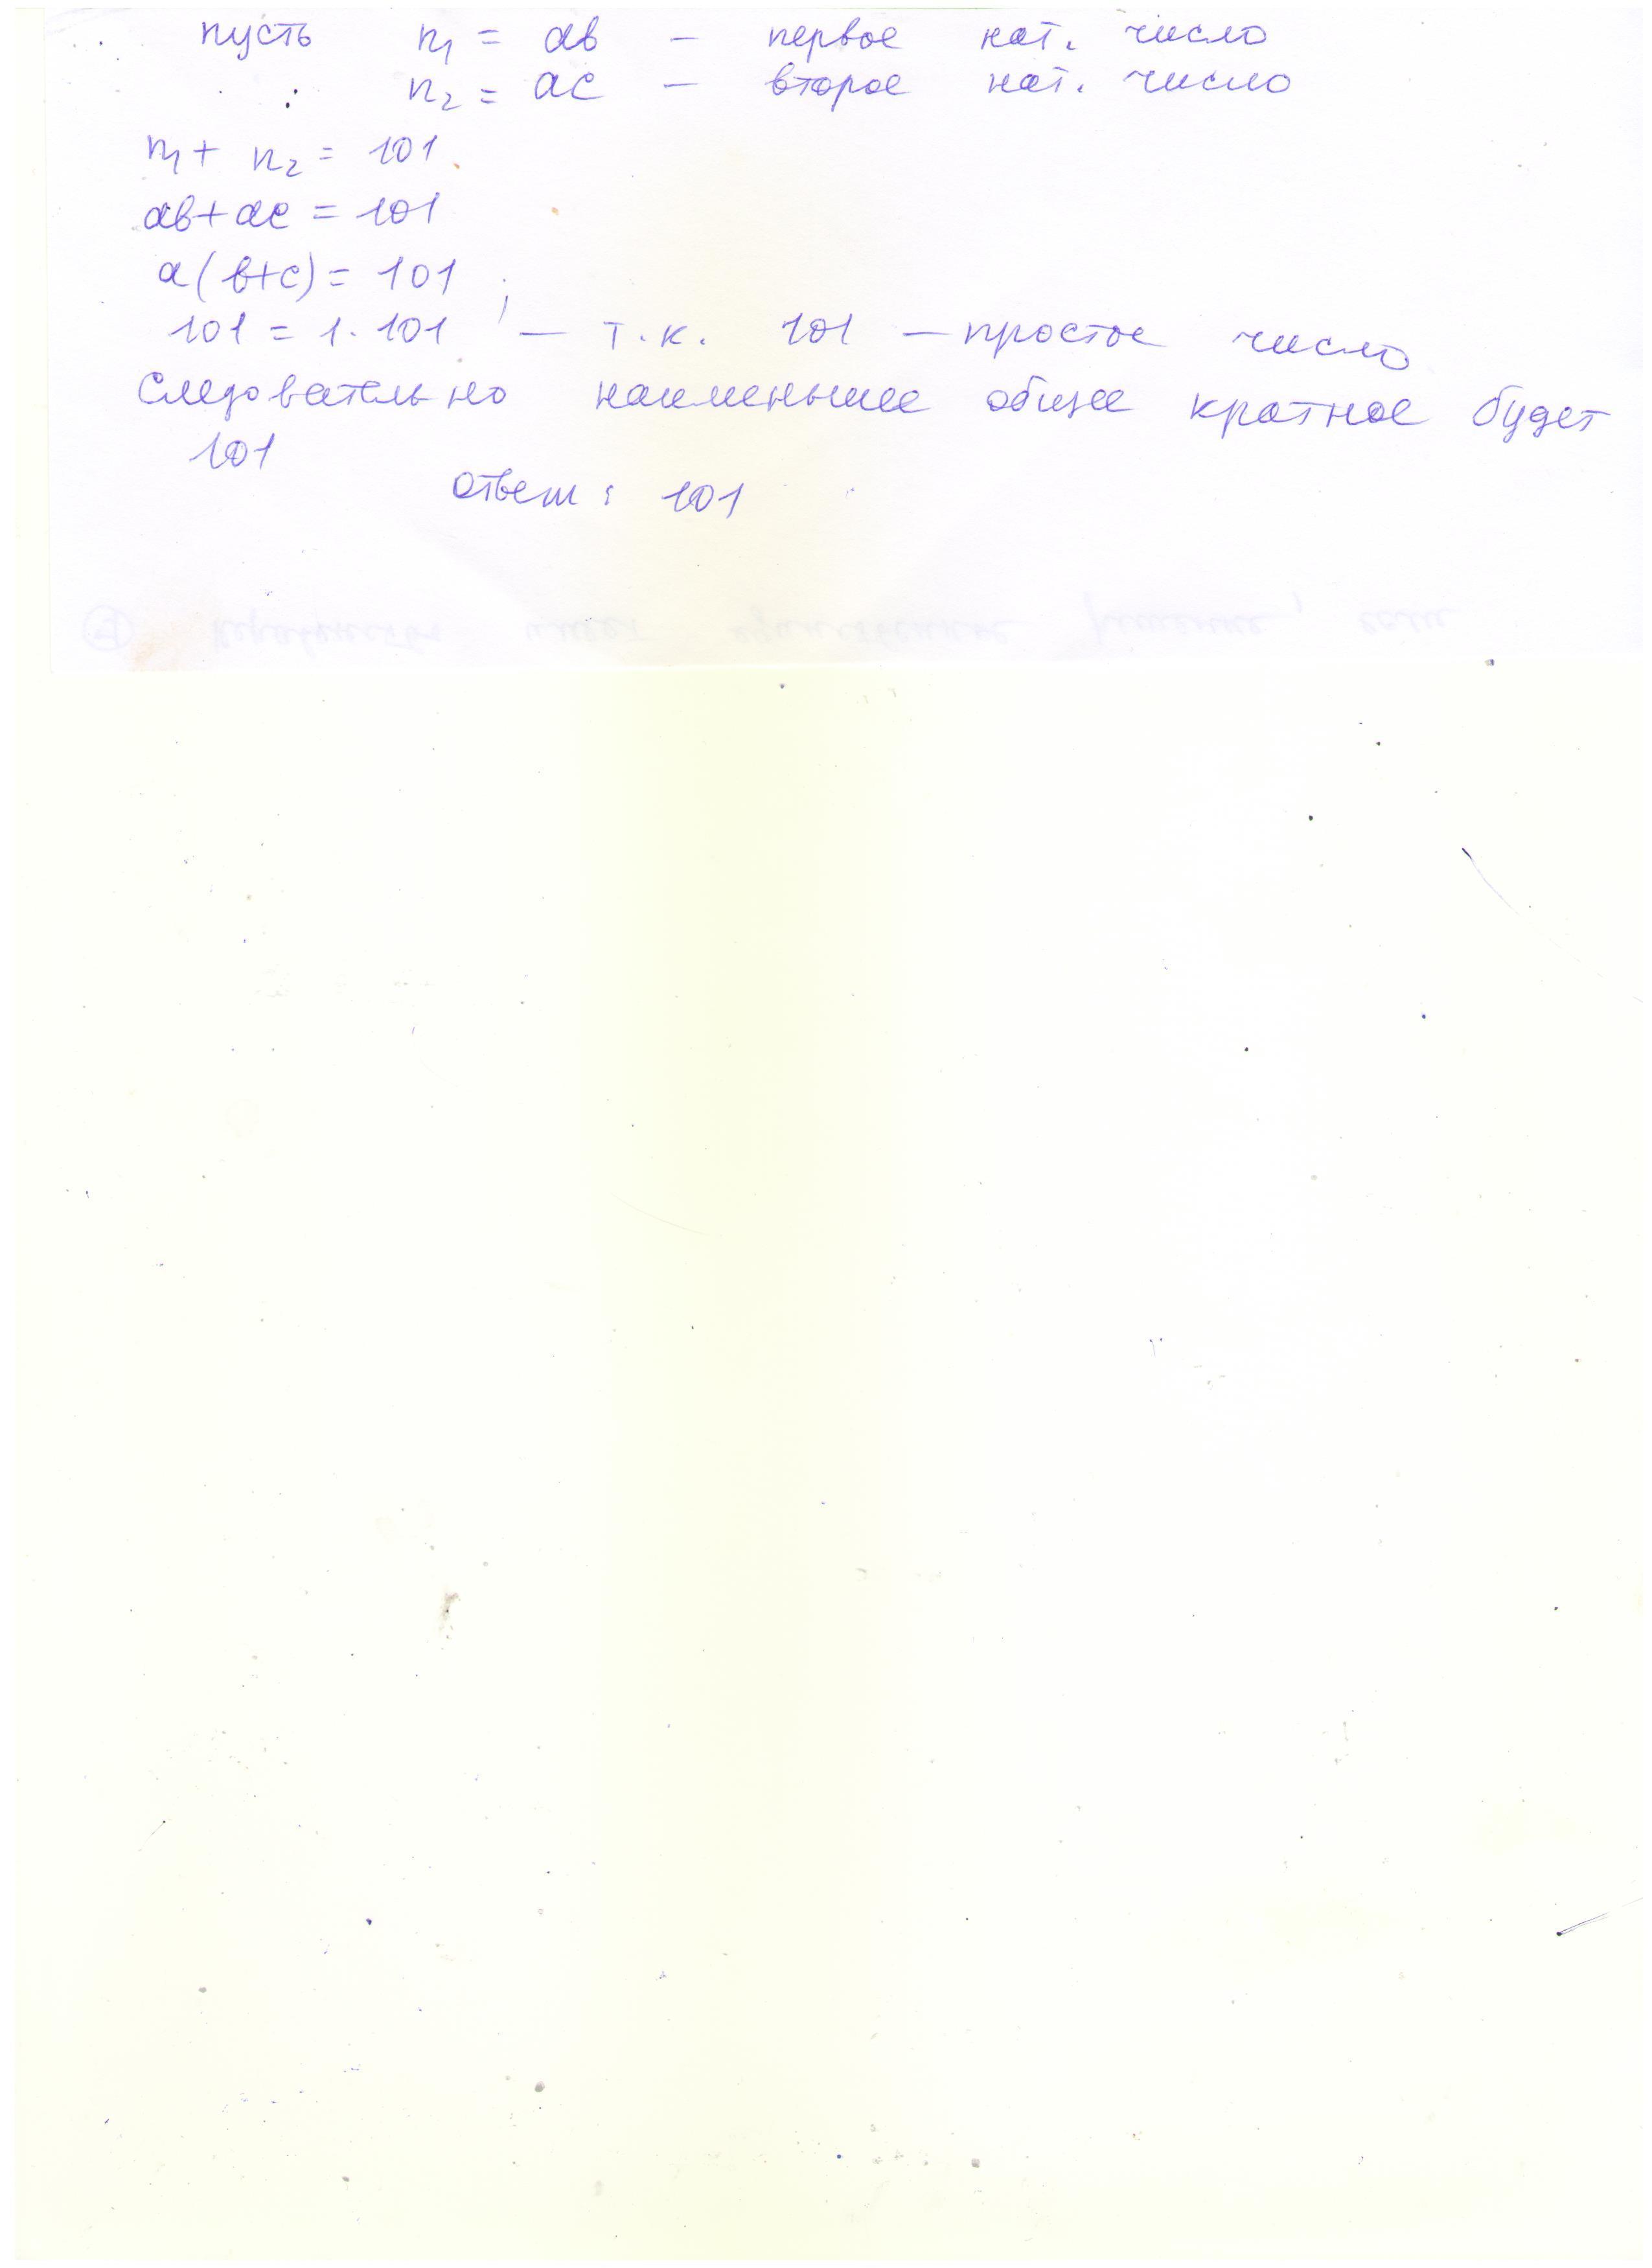 пусть n₁ = ab – первое нат. число
n₂ = ac – второе нат. число
n₁ + n₂ = 101
ab + ac = 101
a(b+c) = 101
101 = 1 · 101 – т.к. 101 – простое число
Следовательно наименьшее общее кратное будет
101
ответ: 101